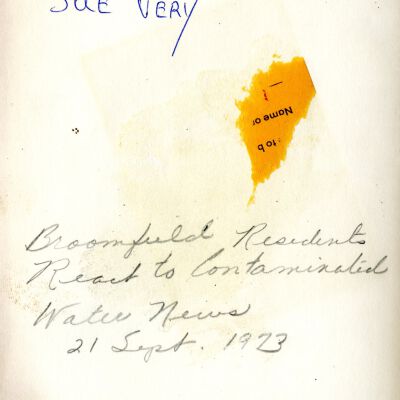 SUE VERY
Name or
to b
Broomfield Residents
React to Contaminated
Water News
21 Sept. 1973